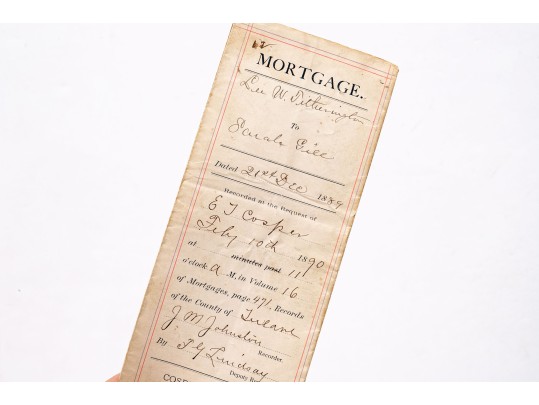 12
MORTGAGE.
Lee W. Titherington
To
Sarah Gill
Dated 21st Dec 1889
Recorded at the Request of
E J Cosper
Feby 10th 1890
at minutes past 11
o'clock A M, in Volume 16
of Mortgages, page 471, Records
of the County of Tulare
J. M Johnston
Recorder
By T G Lindsay
Deputy Re
COSP